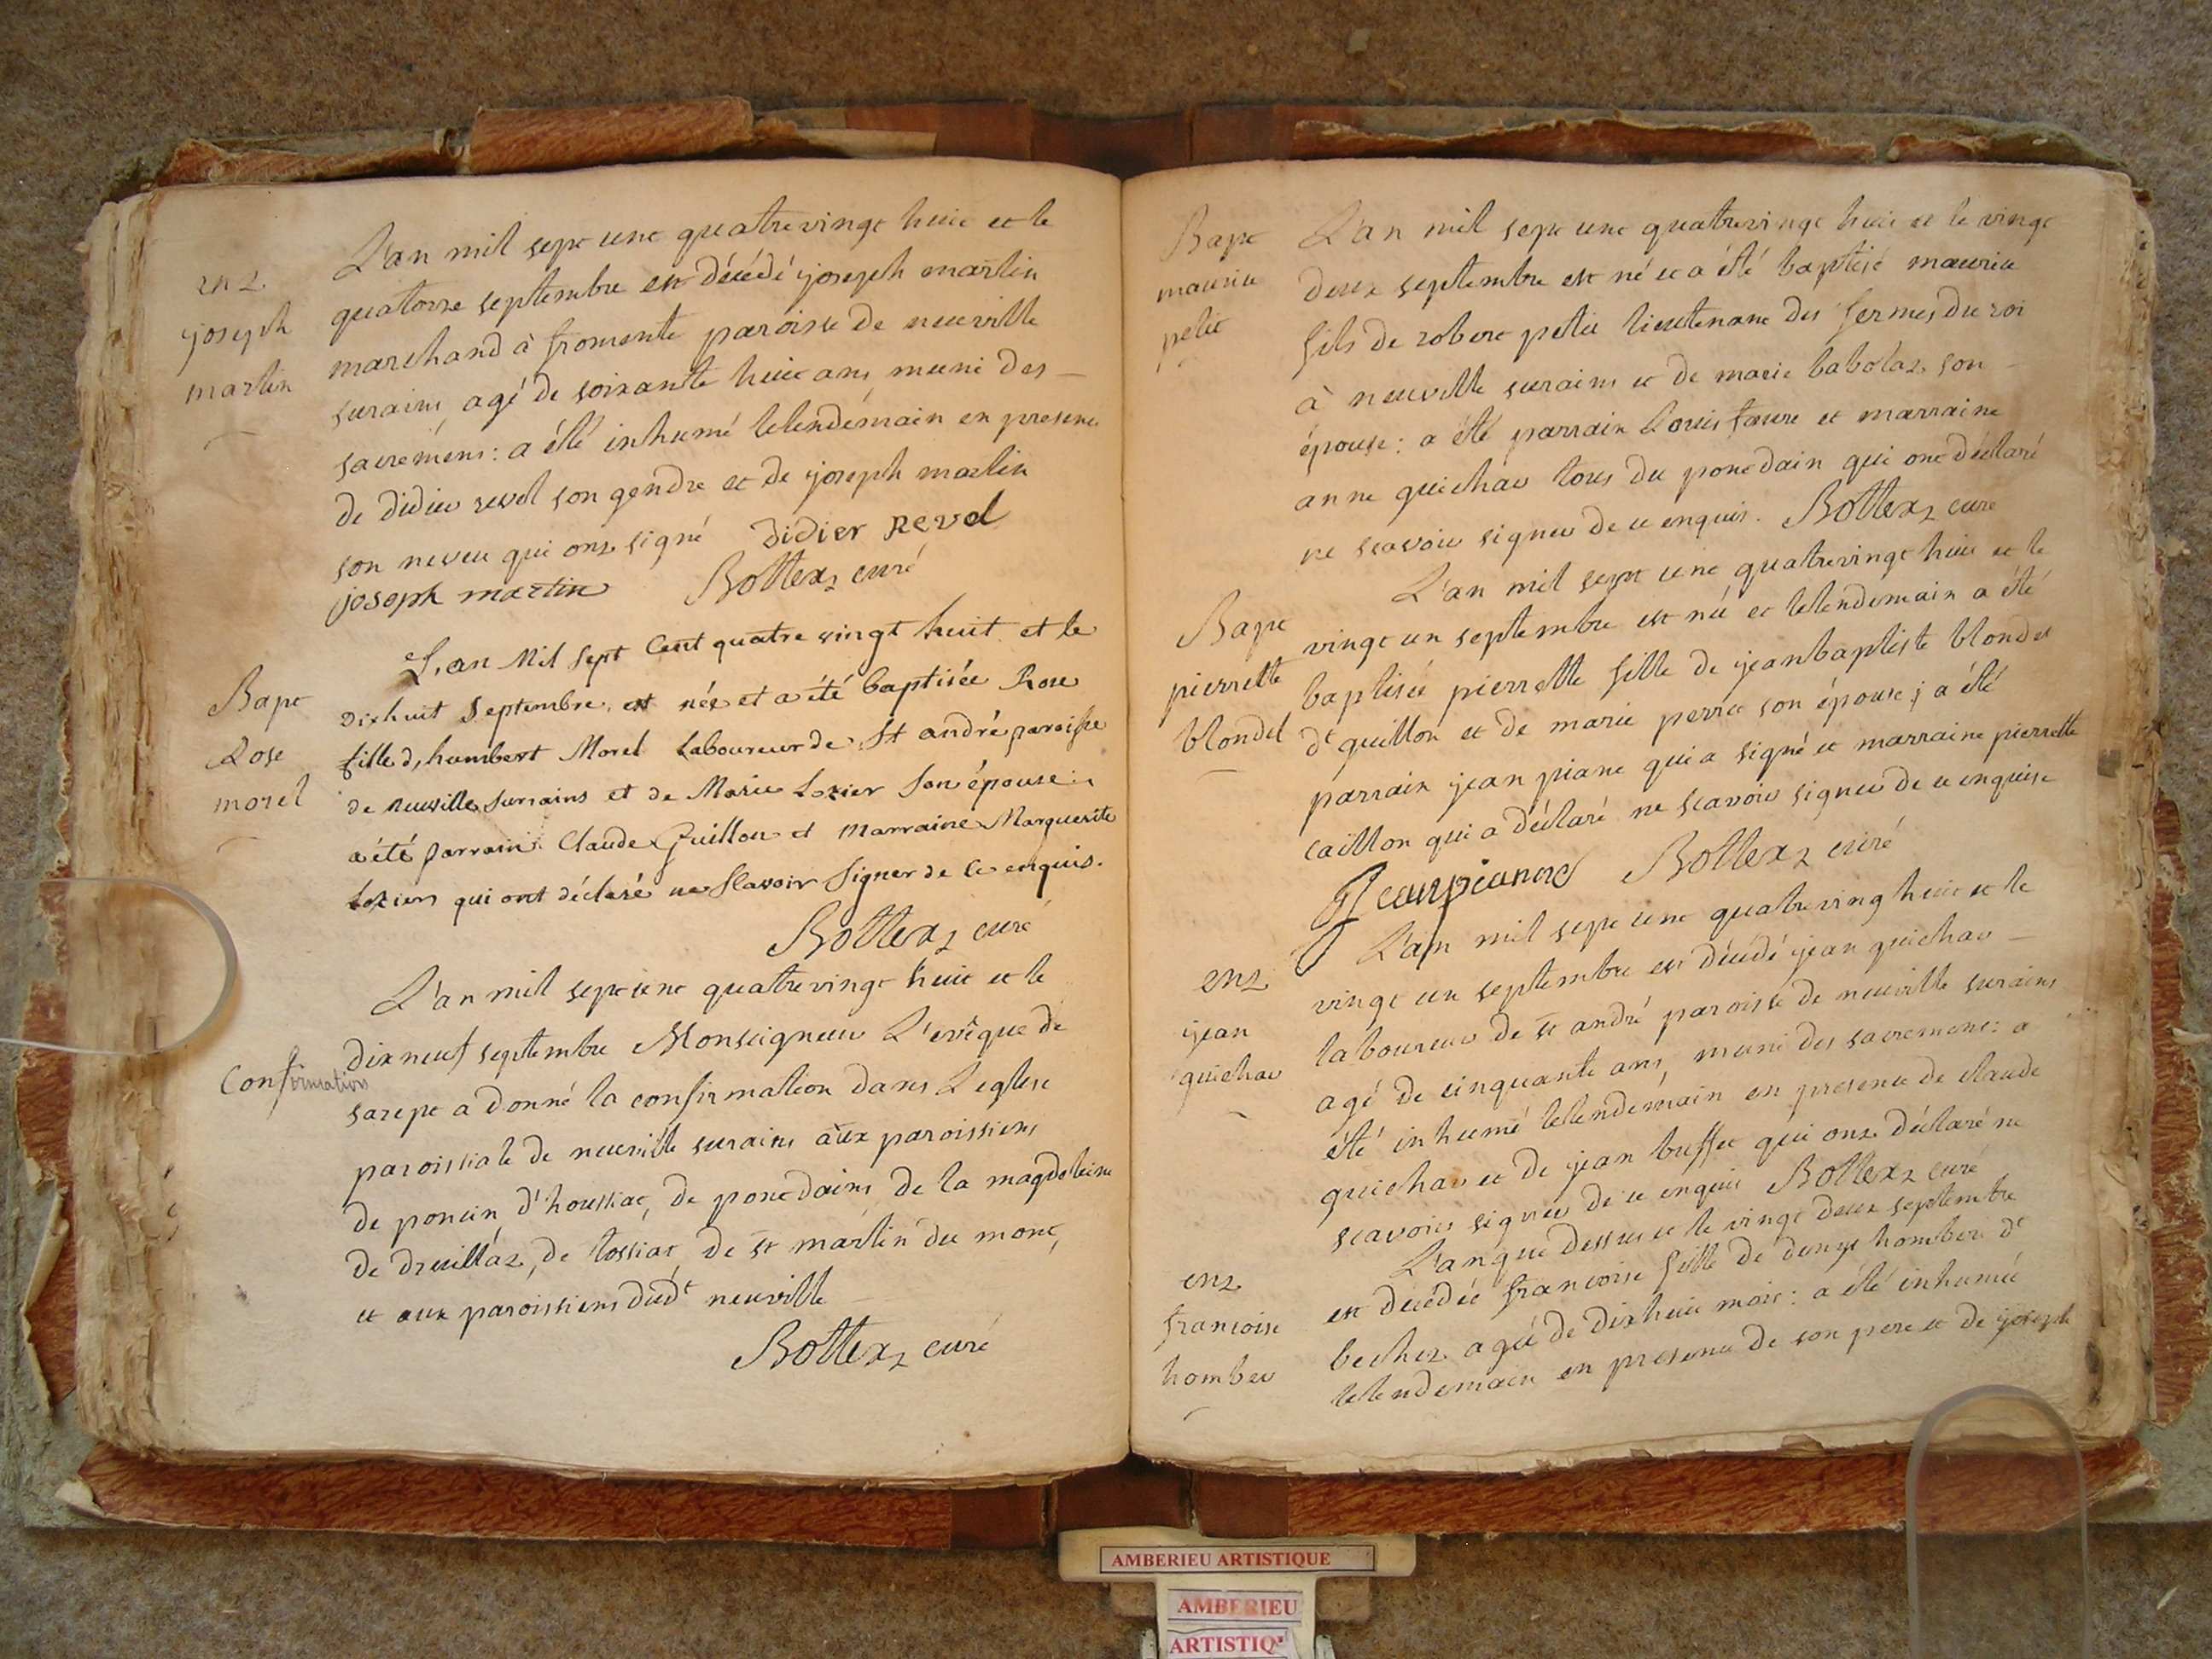 enz.
joseph
martin
L'an mil sept cent quatrevingt huit et le
quatorze septembre est décédé joseph martin
marchand à fromente paroisse de neuville
surains agé de soixante huit ans muni des
sacremens: a été inhumé lelendemain en presence
de didier revel son gendre et de joseph martin
son neveu qui onz signé didier Revel
joseph martin Bottex curé
Bapt
Rose
morel
L,an Mil Sept Cent quatre vingt huit et le
dixhuit Septembre, est née et a été baptisée Rose
fille d,humbert Morel Laboureur de St andré paroisse
de neuville Surrains et de Marie Lozier Son épouse:
a été parrain Claude Guillon et Marraine Marguerite
Lozier qui ont déclaré ne Scavoir Signer de ce enquis.
Bottex curé
Confirmation
L'an mil sept cent quatrevingt huit et le
dixneuf septembre Monseigneur L'evêque de
sarept a donné la confirmation dans L'eglise
paroissiale de neuville surains aux paroissiens
de poncin, d'houssiat, de poncdains de la magdeleine
de druillaz, de tossiat, de st martin du mont,
et aux paroissiens dudt neuville
Bottex curé
Bapt
maurice
petit
L'an mil sept cent quatrevingt huit et le vingt
deux septembre est né et a été baptisé maurice
fils de robert petit lieutenant des fermes du roi
à neuville surains et de marie babolaz son
épouse: a été parrain Louis faure et marraine
anne guichar tous du poncdain qui ont déclaré
ne scavoir signer de ce enquis. Bottex curé
Bapt
pierrette
blondel
L'an mil sept cent quatrevingt huit et le
vingt un septembre est née et lelendemain a été
baptisée pierrette fille de jeanbaptiste blondel
dt guillon et de marie perret son épouse; a été
parrain jean piane qui a signé et marraine pierrette
caillon qui a déclaré ne scavoir signer de ce enquise
Jean Bottex curé
enz
jean
guichar
L'an mil sept cent quatreving huit et le
vingt un septembre est décédé jean guichar
laboureur de st andré paroisse de neuville surains
agé de cinquante ans, muni des sacremens: a
été inhumé lelendemain en presence de claude
guichar et de jean buffet qui onz déclaré ne
scavoir signer de ce enquis Bottex curé
enz
francoise
homber
L'an que dessus et le vingt deux septembre
est decédée francoise fille de denys homber dt
bechez agée de dixhuit mois: a été inhumée
lelendemain en presence de son pere et de joseph
AMBERIEU ARTISTIQUE
AMBERIEU
ARTISTIQ